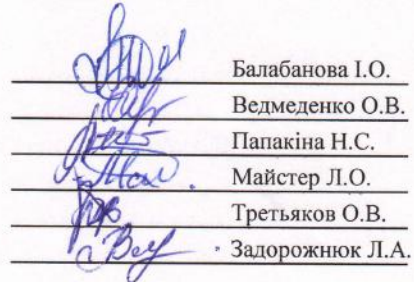 Балабанова І.О.
Ведмеденко О.В.
Папакіна Н.С.
Майстер Л.О.
Третьяков О.В.
Задорожнюк Л.А.